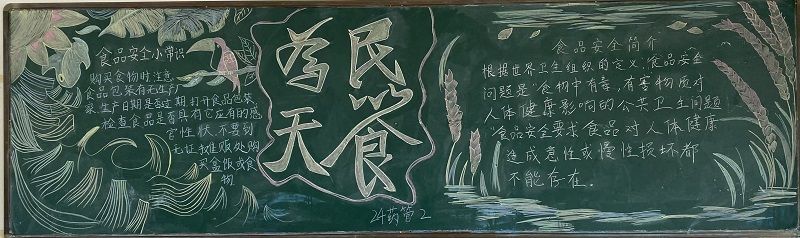 食品安全小常识
购买食物时注意
食品包装有无生产
家生产日期是否过期打开食品包装
检查食品是否具有它应有的感
官性状不要到
无证摊贩处购
买盒饭或食
物
民以食
为天
食品安全简介
根据世界卫生组织的定义,食品安全
问题是"食物中有毒,有害物质对
人体健康影响的公共卫生问题
"食品安全要求食品对人体健康
造成急性或慢性损坏都
不能存在.
24药管2